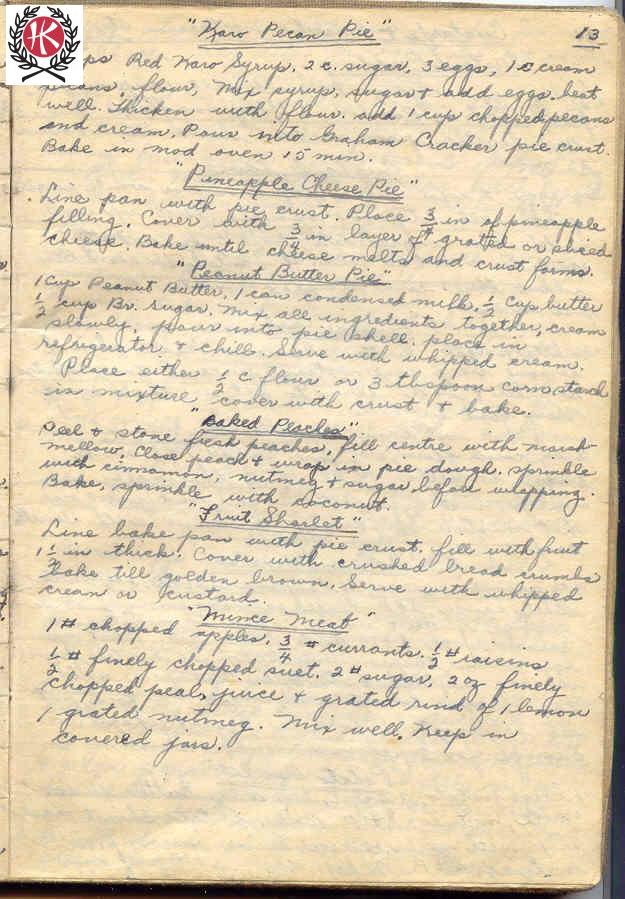 HK
"Karo Pecan Pie" 13
ps Red Karo Syrup. 2 c. sugar, 3 eggs, 1 c cream
pecans, flour, Mix syrup, sugar & add eggs. beat
well. Thicken with flour. add 1 cup chopped pecans
and cream. Pour into Graham Cracker pie crust.
Bake in mod oven 15 min.
"Pineapple Cheese Pie"
Line pan with pie crust. Place 3/4 in of pineapple
filling. Cover with 3/4 in layer of grated or sliced
cheese. Bake until cheese melts and crust forms.
"Peanut Butter Pie"
1 Cup Peanut Butter, 1 can condensed milk, 1/2 Cup butter
1/2 cup Br. sugar. Mix all ingredients together, cream
slowly, pour into pie shell. place in
refrigerator & chill. Serve with whipped cream.
Place either 1/2 c flour or 3 tbspoon corn starch
in mixture cover with crust & bake.
"Baked Peaches"
Peel & stone fresh peaches, fill centre with marsh-
mellow, Close peach & wrap in pie dough. sprinkle
with cinnamon, nutmeg & sugar before wrapping.
Bake, sprinkle with coconut.
"Fruit Sharlet"
Line bake pan with pie crust. fill with fruit
1 1/2 in thick. Cover with crushed bread crumbs
bake till golden brown. Serve with whipped
cream or custard.
"Mince Meat"
1 # chopped apples, 3/4 # currants. 1/2 # raisins
1/2 # finely chopped suet. 2 # sugar, 2 oz finely
chopped peal, juice & grated rind of 1 lemon
1 grated nutmeg. Mix well. Keep in
covered jars.